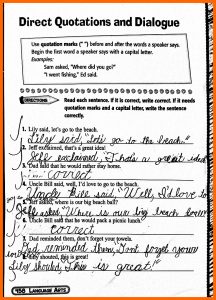 Direct Quotations and Dialogue
Use quotation marks (" ") before and after the words a speaker says.
Begin the first word a speaker says with a capital letter.
Examples:
Sam asked, "Where did you go?"
"I went fishing," Ed said.
DIRECTIONS Read each sentence, if it is correct, write correct. If it needs
quotation marks and a capital letter, write the sentence
correctly.
1. Lily said, let's go to the beach.
Lily said, "Let's go to the beach."
2. Jeff exclaimed, that's a great idea!
Jeff exclaimed, "That's a great idea!
3. Dad said that he would rather stay home.
correct
4. Uncle Bill said, well, I'd love to go to the beach.
Uncle Bill said, "Well, I'd love to
5. Jeff asked, where is our big beach towel?
Jeff asked "Where is our big beach towel?
6. Uncle Bill said that he would pack a picnic lunch.
correct
7. Dad reminded them, don't forget your towels.
Dad reminded them, "Don't forget your
8. Lily shouted, this is great!
Lily shouted, "This is great!"
Language Arts